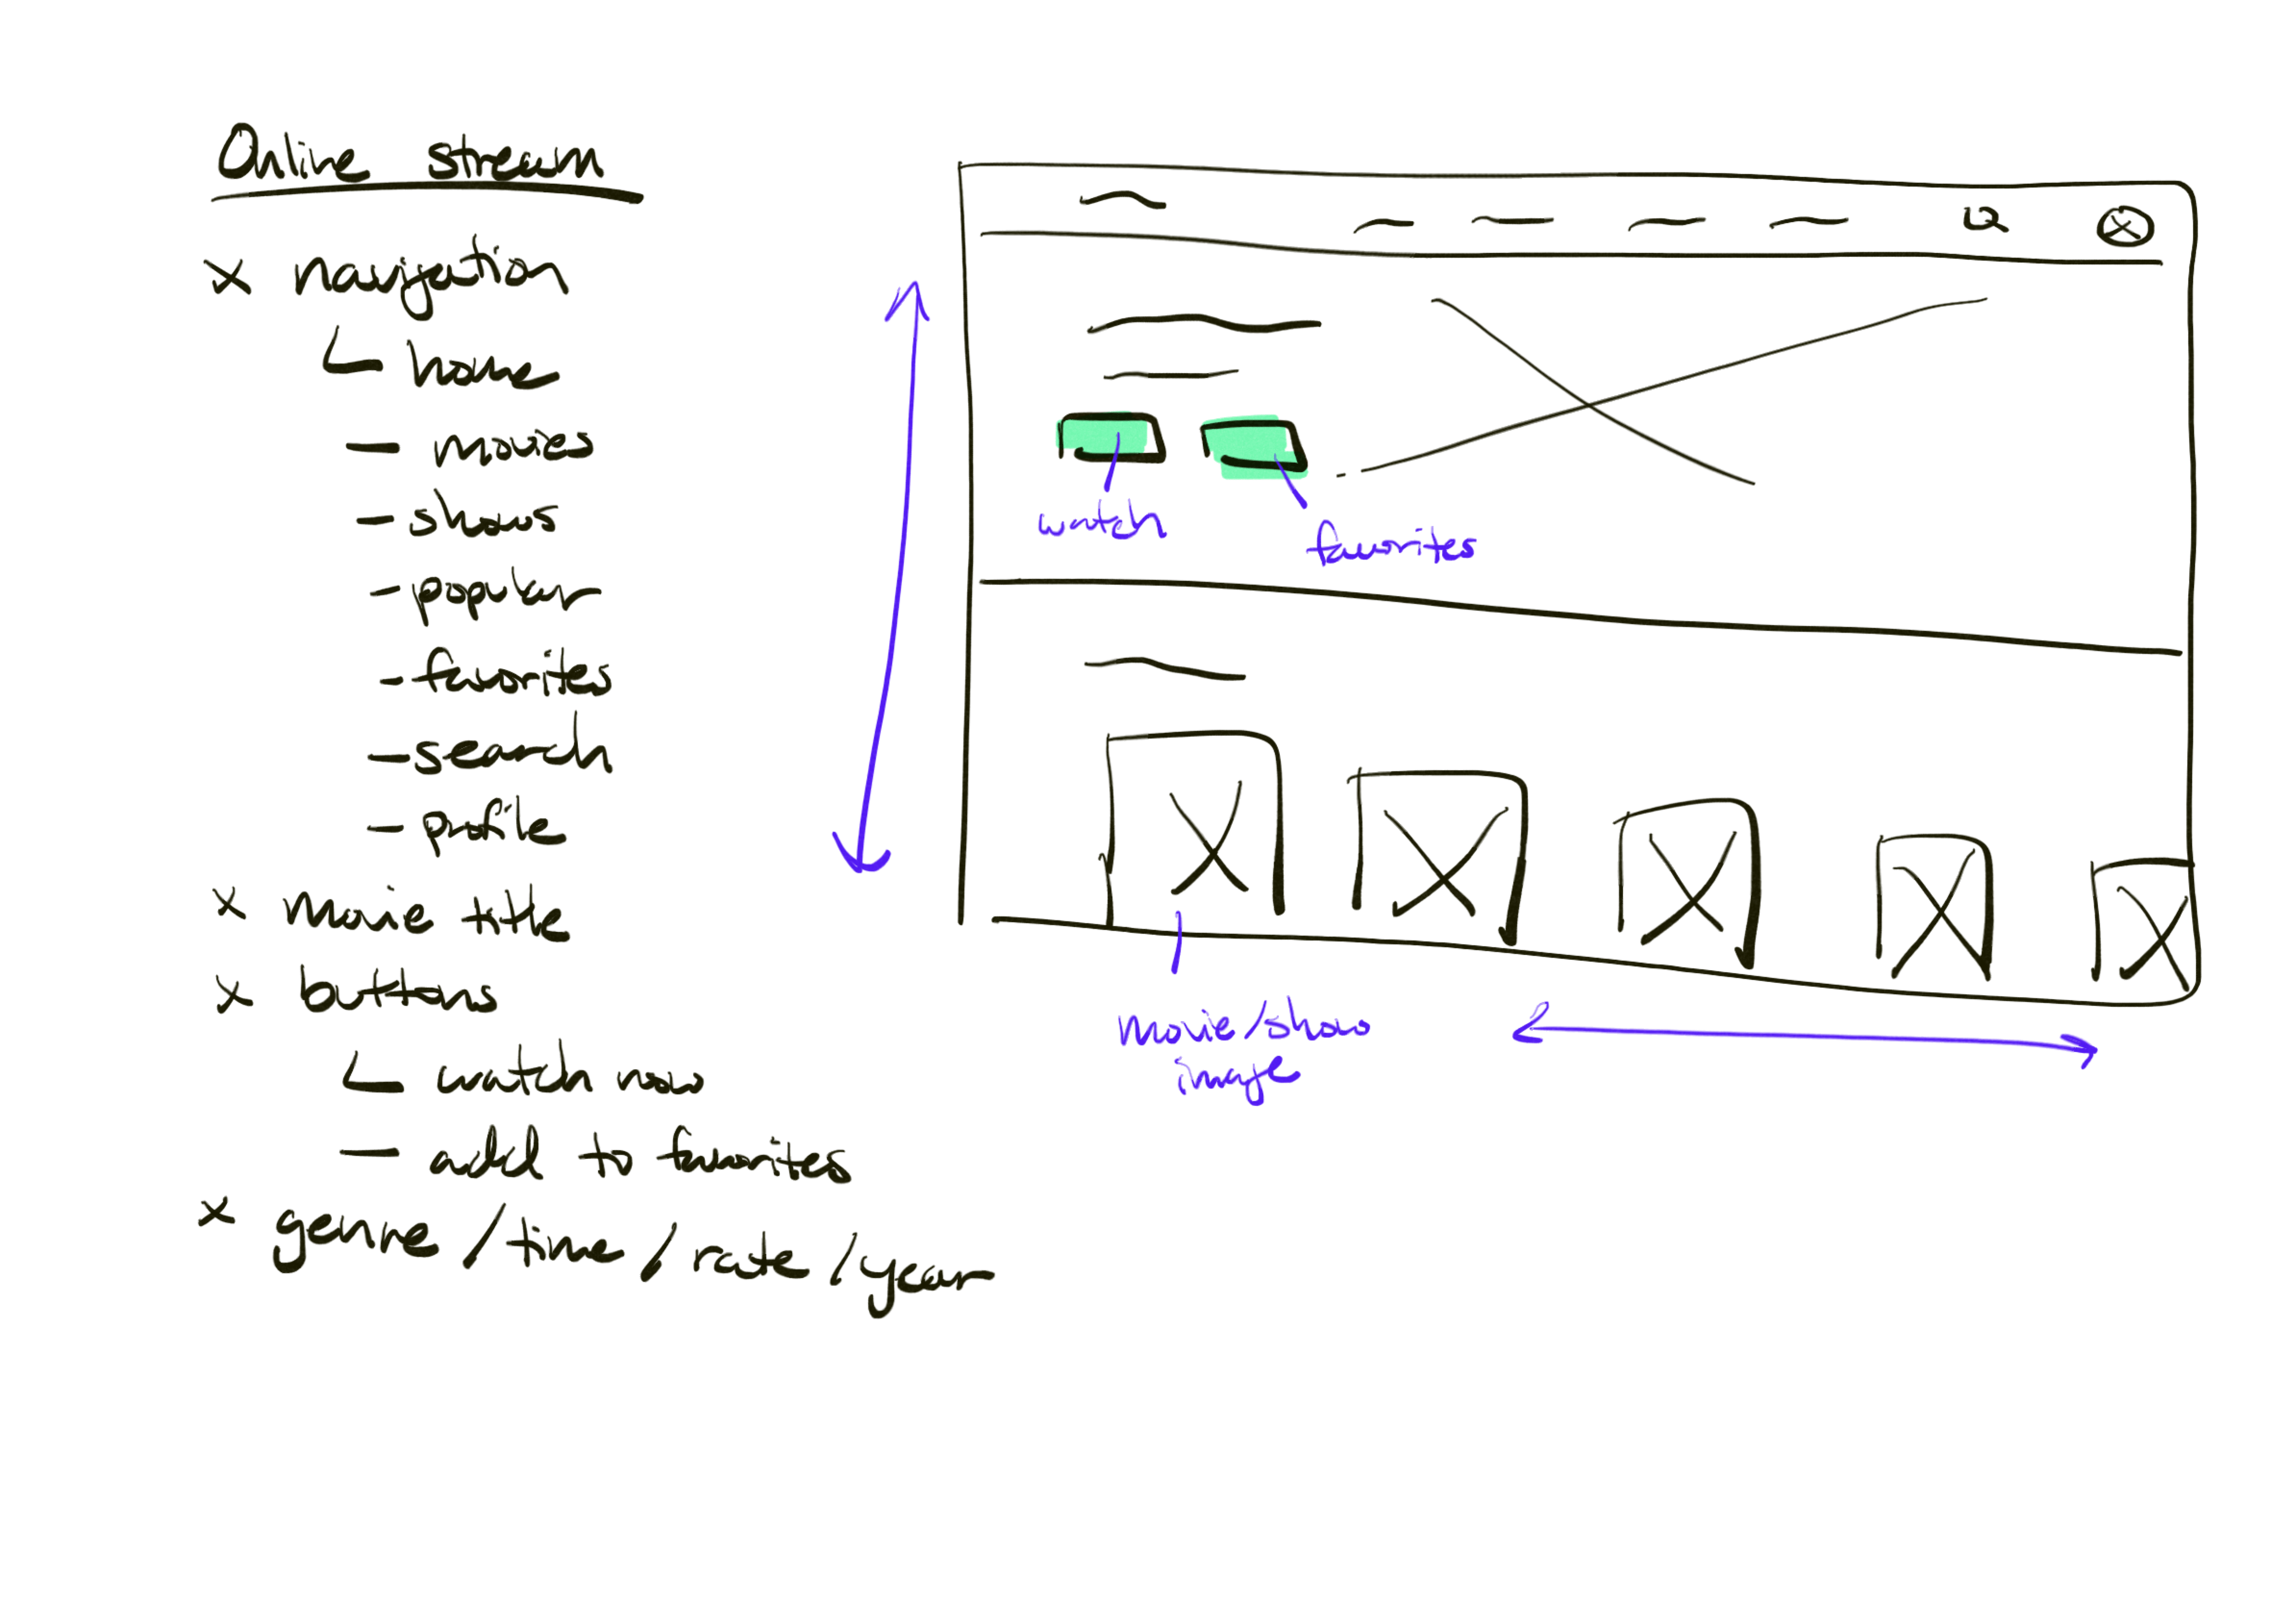 Online stream
x navigation
home
- movies
- shows
- popular
- favorites
- search
- profile
x movie title
x buttons
watch now
- add to favorites
x genre / time / rate / year
watch
favorites
movie/show
image